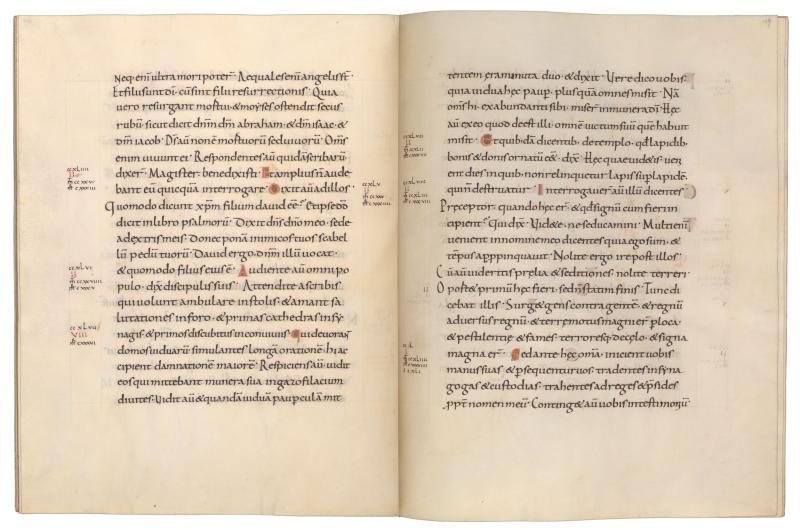 Neq· eni ultra mori poter̄· Aequales eni angelis st̄·
Et filii sunt dī· cū sint filii resurrectionis· Quia
vero resurgant mortui & moyses ostendit secus
rubū· sicut dicit dnm̄ dm̄ abraham· & dm̄ isaac· &
dm̄ iacob· Ds̄ aū non ē mortuorū sed vivorū· Om̄s
enim vivunt ei· Respondentes aū quidā scribarū
dixer̄· Magister benedixisti· Et amplius n̄ aude
bant eū quicquā interrogare· Dixit aū ad illos·
Quomodo dicunt xpm̄ filium david eē· Et ipse dd̄
dicit in libro psalmorū· Dixit dns̄ dno meo· sede
a dextris meis· Donec ponā inimicos tuos scabel
lū pedū tuorū· David ergo· dnm̄ illū vocat·
& quomodo filius ei' est· Audiente aū omni po
pulo· dx̄ discipulis suis· Attendite a scribis
qui volunt ambulare in stolis· & amant sa
lutationes in foro· & primas cathedras in sy
nagis· & primos discubitus in conviviis· Qui devorant
domus viduarū simulantes longā orationē· hi ac
cipient damnationē maiorē· Respiciens aū· vidit
eos qui mittebant munera sua in gazofilacium
divites· Vidit aū & quandā viduā paupculā mit
tentem aera minuta duo· & dixit· Vere dico vobis·
quia vidua hec paup̄· plus quā omnes misit· Nā
om̄s hi· ex abundanti sibi· miser̄ in munera dī· Hęc
aū ex eo quod deest illi· omnē victum suū quē habuit
misit· Et quibdā dicentib· de templo· qd lapidib·
bonis & donis ornatū eē· dx̄· Hęc quae videtis· ven
ent dies in quib· non relinquetur lapis sup lapidē·
qui n̄ destruatur· Interrogaver̄ aū illū dicentes·
Preceptor· quando hęc er̄· & qd signū cum fieri in
cipient· Qui dx̄· Videte· ne seducamini· Multi eni
venient in nomine meo dicentes quia ego sum· &
tempus appinquavit· Nolite ergo ire post illos·
Cū aū videritis prelia & seditiones· nolite terreri·
Oport& primū hęc fieri· sed n̄ statim finis· Tunc di
cebat illis· Surg& gens contra gentē· & regnū
adversus regnū· & terremotus magni er̄ p loca·
& pestilentię & fames· terroresq· de cęlo· & signa
magna er̄· Sed ante hęc om̄a· inicient vobis
manus suas· & psequentur vos· tradentes in syna
gogas & custodias· trahentes ad reges & psides
ppt̄ nomen meū· Conting& aū vobis in testimoniū·